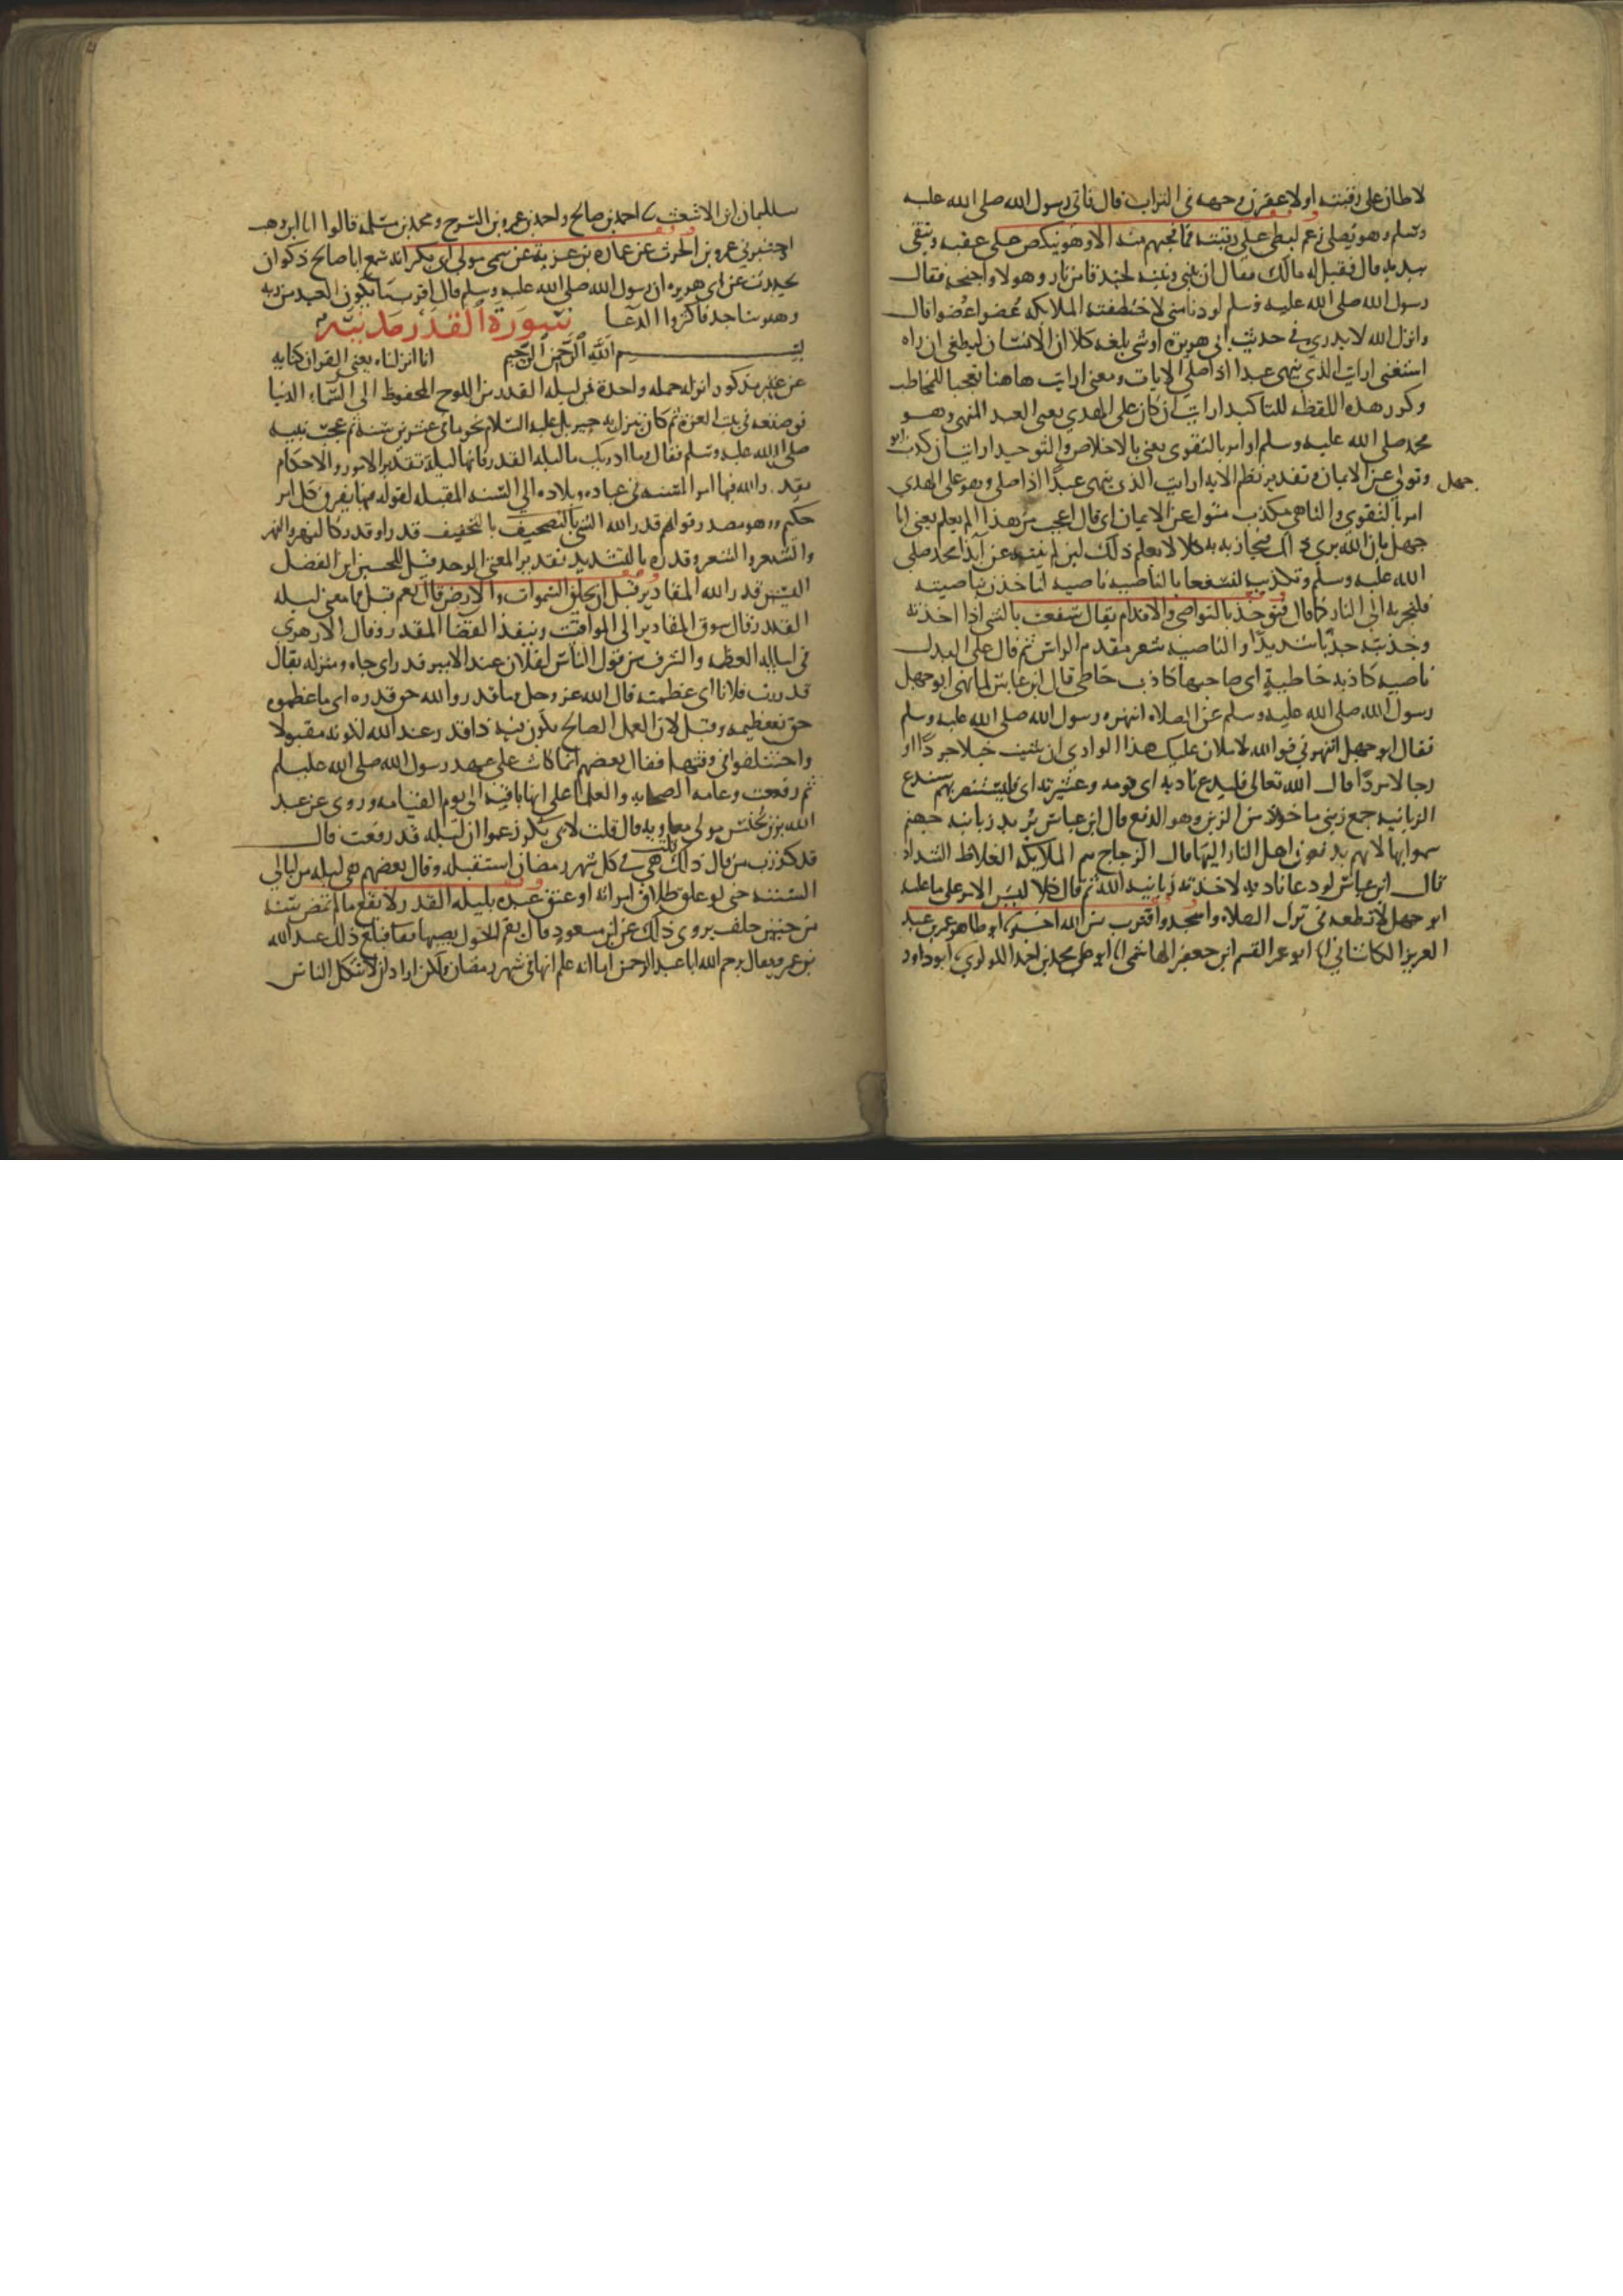 لاطان على رقبته او لاعفرن وجهه في التراب قال فاتى رسول الله صلى الله عليه
وسلم وهو يصلي زعم ليطي على رقبته فما فجيهم منه الا وهو ينكص على عقبيه ويتقي
بيديه قال فقيل له مالك فقال ان بيني وبينه لخندقا من نار وهولا واجنحة فقال
رسول الله صلى الله عليه وسلم لو دنا مني لاختطفته الملايكه عضوا عضوا قال
وانزل الله لا يدري في حديث ابي هريرة او شي بلغه كلا ان الانسان ليطغى ان راه
استغنى ارايت الذي ينهى عبدا اذا صلى الايات ومعنى ارايت هاهنا تعجبا للمخاطب
وكرر هذه اللفظه للتاكيد ارايت ان كان على الهدي يعني العبد المنهي وهو
محمد صلى الله عليه وسلم او امر بالتقوى يعني بالاخلاص والتوحيد ارايت ان كذب ابو
جهل وتولى عن الايمان وتقدير نظم الايه ارايت الذي ينهى عبدًا اذا صلى وهو على الهدي
امر بالتقوى والناهي مكذب متول عن الايمان اي فما اعجب من هذا الم يعلم يعني ابا
جهل بان الله يرى ذلك فيجازيه به كلا لا يعلم ذلك لين لم ينته عن ايذا محمد صلى
الله عليه وسلم وتكذيبه لنسفعا بالناصيه ناصيه لناخذن بناصيته
فلنجرنه الى النار كما قال فيوخذ بالنواصي والاقدام يقال سفعت بالشي اذا اخذته
وجذبته جذبا شديدًا والناصيه شعر مقدم الراس ثم قال على البدل
ناصيه كاذبه خاطية اي صاحبها كاذب خاطي قال ابن عباس لما نهى ابو جهل
رسول الله صلى الله عليه وسلم عن الصلاه انتهره رسول الله صلى الله عليه وسلم
فقال ابو جهل اتنهرني فوالله لاملان عليك هذا الوادي ان شيت خيلا جردًا او
رجالا مردًا قال الله تعالى فليدع ناديه اي قومه وعشيرته اي فليستنصر بهم سندع
الزبانيه جمع زبني ماخوذ من الزبن وهو الدفع قال ابن عباس يريد زبانيه جهنم
سموا بها لانهم يدفعون اهل النار اليها قال الزجاج هم الملايكه الغلاظ الشداد
قال ابن عباس لو دعا ناديه لاخذته زبانيه الله ثم قال كلا ليس الامر على ما عليه
ابو جهل لا تطعه في ترك الصلاه واسجد واقترب من الله اخبرنا ابو طاهر عمر بن عبد
العزيز الكاشاني انا ابو عمر القسم ابن جعفر الهاشمي انا ابو علي محمد بن احمد اللولوي ابو داود
سليمان ابن الاشعث احمد بن صالح واحمد بن عمرو بن السرح ومحمد بن سلمه قالوا انا ابن وهب
اخبرني عمرو بن الحرث عن عماره بن غزية عن سمي مولى ابي بكر انه سمع ابا صالح ذكوان
يحدث عن ابي هريره ان رسول الله صلى الله عليه وسلم قال اقرب ما يكون العبد من ربه
وهو ساجد فاكثروا الدعا سورة القدر مدنيه
بسم الله الرحمن الرحيم انا انزلناه يعني القران كنايه
عن غير مذكور انزله جمله واحدة في ليله القدر من اللوح المحفوظ الى السماء الدنيا
فوضعه في بيت العزة ثم كان ينزل به جبريل عليه السلام نجوما في عشرين سنه ثم عجب نبيه
صلى الله عليه وسلم فقال وما ادريك ما ليله القدر فانها ليلة تقدير الامور والاحكام
يقدر الله فيها امر السنه في عباده وبلاده الى السنه المقبله لقوله فيها يفرق كل امر
حكيم وهو مصدر قولهم قدر الله الشي بالتخفيف قدرا وقدر كالنهر والنهر
والشعر والشعر وقدره بالتشديد تقديرا المعنى الواحد قيل للحسين ابن الفضل
اليس قدر الله المقادير قبل ان يخلق السموات والارض قال نعم قيل فما معنى ليله
القدر قال سوق المقادير الى المواقيت وتنفيذ القضا المقدر وقال الازهري
في ليله العظمه والشرف من قول الناس لفلان عند الامير قدر اي جاه ومنزله يقال
قدرت فلانا اي عظمته قال الله عز وجل وما قدروا الله حق قدره اي ما عظموه
حق تعظيمه وقيل لان العمل الصالح يكون فيه ذا قدر عند الله لكونه مقبولا
واختلفوا في وقتها فقال بعضهم انما كانت على عهد رسول الله صلى الله عليه وسلم
ثم رفعت وعامه الصحابه والعلما على انها باقيه الى يوم القيامه وروى عن عبد
الله بن مكنس مولى معاويه قال قلت لابي هريرة زعموا ان ليله قد رفعت قال
قد كذب من قال ذلك قلت هي في كل شهر رمضان استقبله وقال بعضهم هي ليله من ليالي
السنه حتى لو علق طلاق امراته او عتق عبده بليله القدر لا يقع ما لم تمض سنه
من حين حلف يروى ذلك عن ابن مسعود قال من يقم الحول يصبها فبلغ ذلك عبد الله
بن عمر فقال يرحم الله ابا عبد الرحمن اما انه علم انها في شهر رمضان ولكن اراد ان لا يتكل الناس